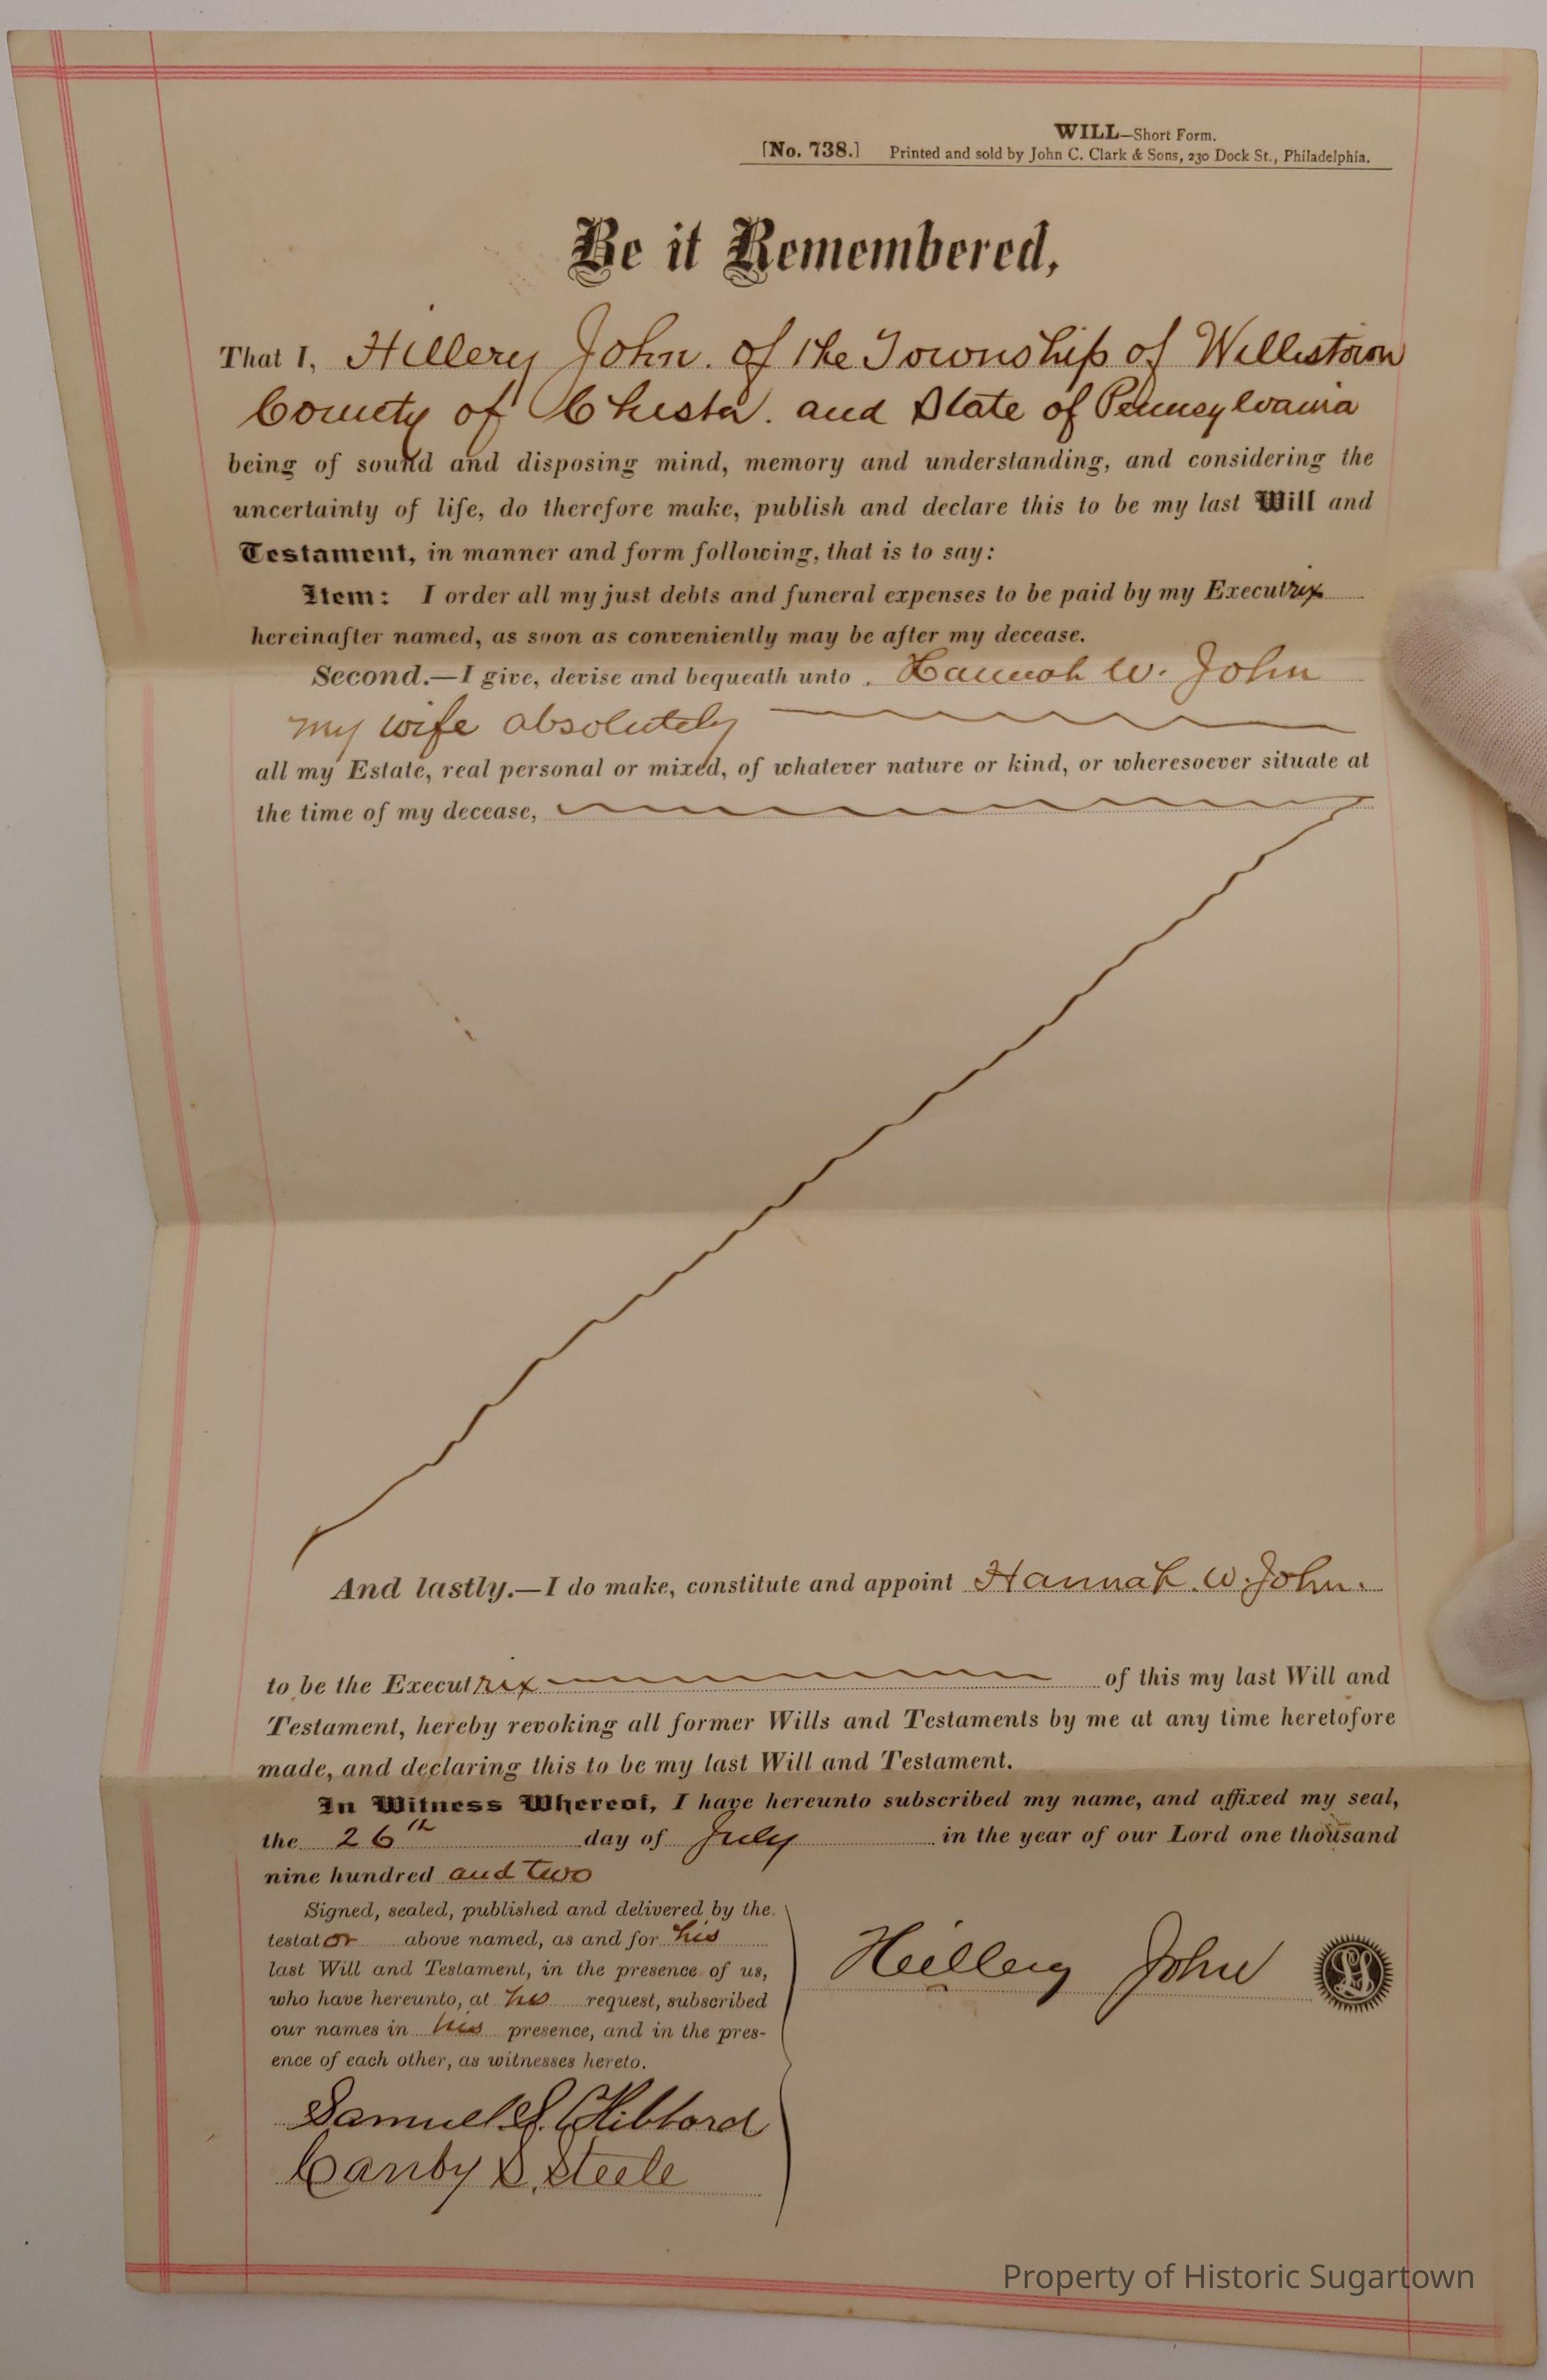 WILL—Short Form.
[No. 738.] Printed and sold by John C. Clark & Sons, 230 Dock St., Philadelphia.
Be it Remembered,
That I, Hillery John. of the Township of Willistown
County of Chester. and State of Pennsylvania
being of sound and disposing mind, memory and understanding, and considering the
uncertainty of life, do therefore make, publish and declare this to be my last Will and
Testament, in manner and form following, that is to say:
Item: I order all my just debts and funeral expenses to be paid by my Executrix
hereinafter named, as soon as conveniently may be after my decease.
Second.—I give, devise and bequeath unto Hannah W. John
my wife absolutely
all my Estate, real personal or mixed, of whatever nature or kind, or wheresoever situate at
the time of my decease,
And lastly.—I do make, constitute and appoint Hannah W. John.
to be the Executrix of this my last Will and
Testament, hereby revoking all former Wills and Testaments by me at any time heretofore
made, and declaring this to be my last Will and Testament.
In Witness Whereof, I have hereunto subscribed my name, and affixed my seal,
the 26th day of July in the year of our Lord one thousand
nine hundred and two
Signed, sealed, published and delivered by the
testator above named, as and for his
last Will and Testament, in the presence of us,
who have hereunto, at his request, subscribed
our names in his presence, and in the pres-
ence of each other, as witnesses hereto.
Hillery John LS
Samuel S. Hibberd
Canby S. Steele
Property of Historic Sugartown